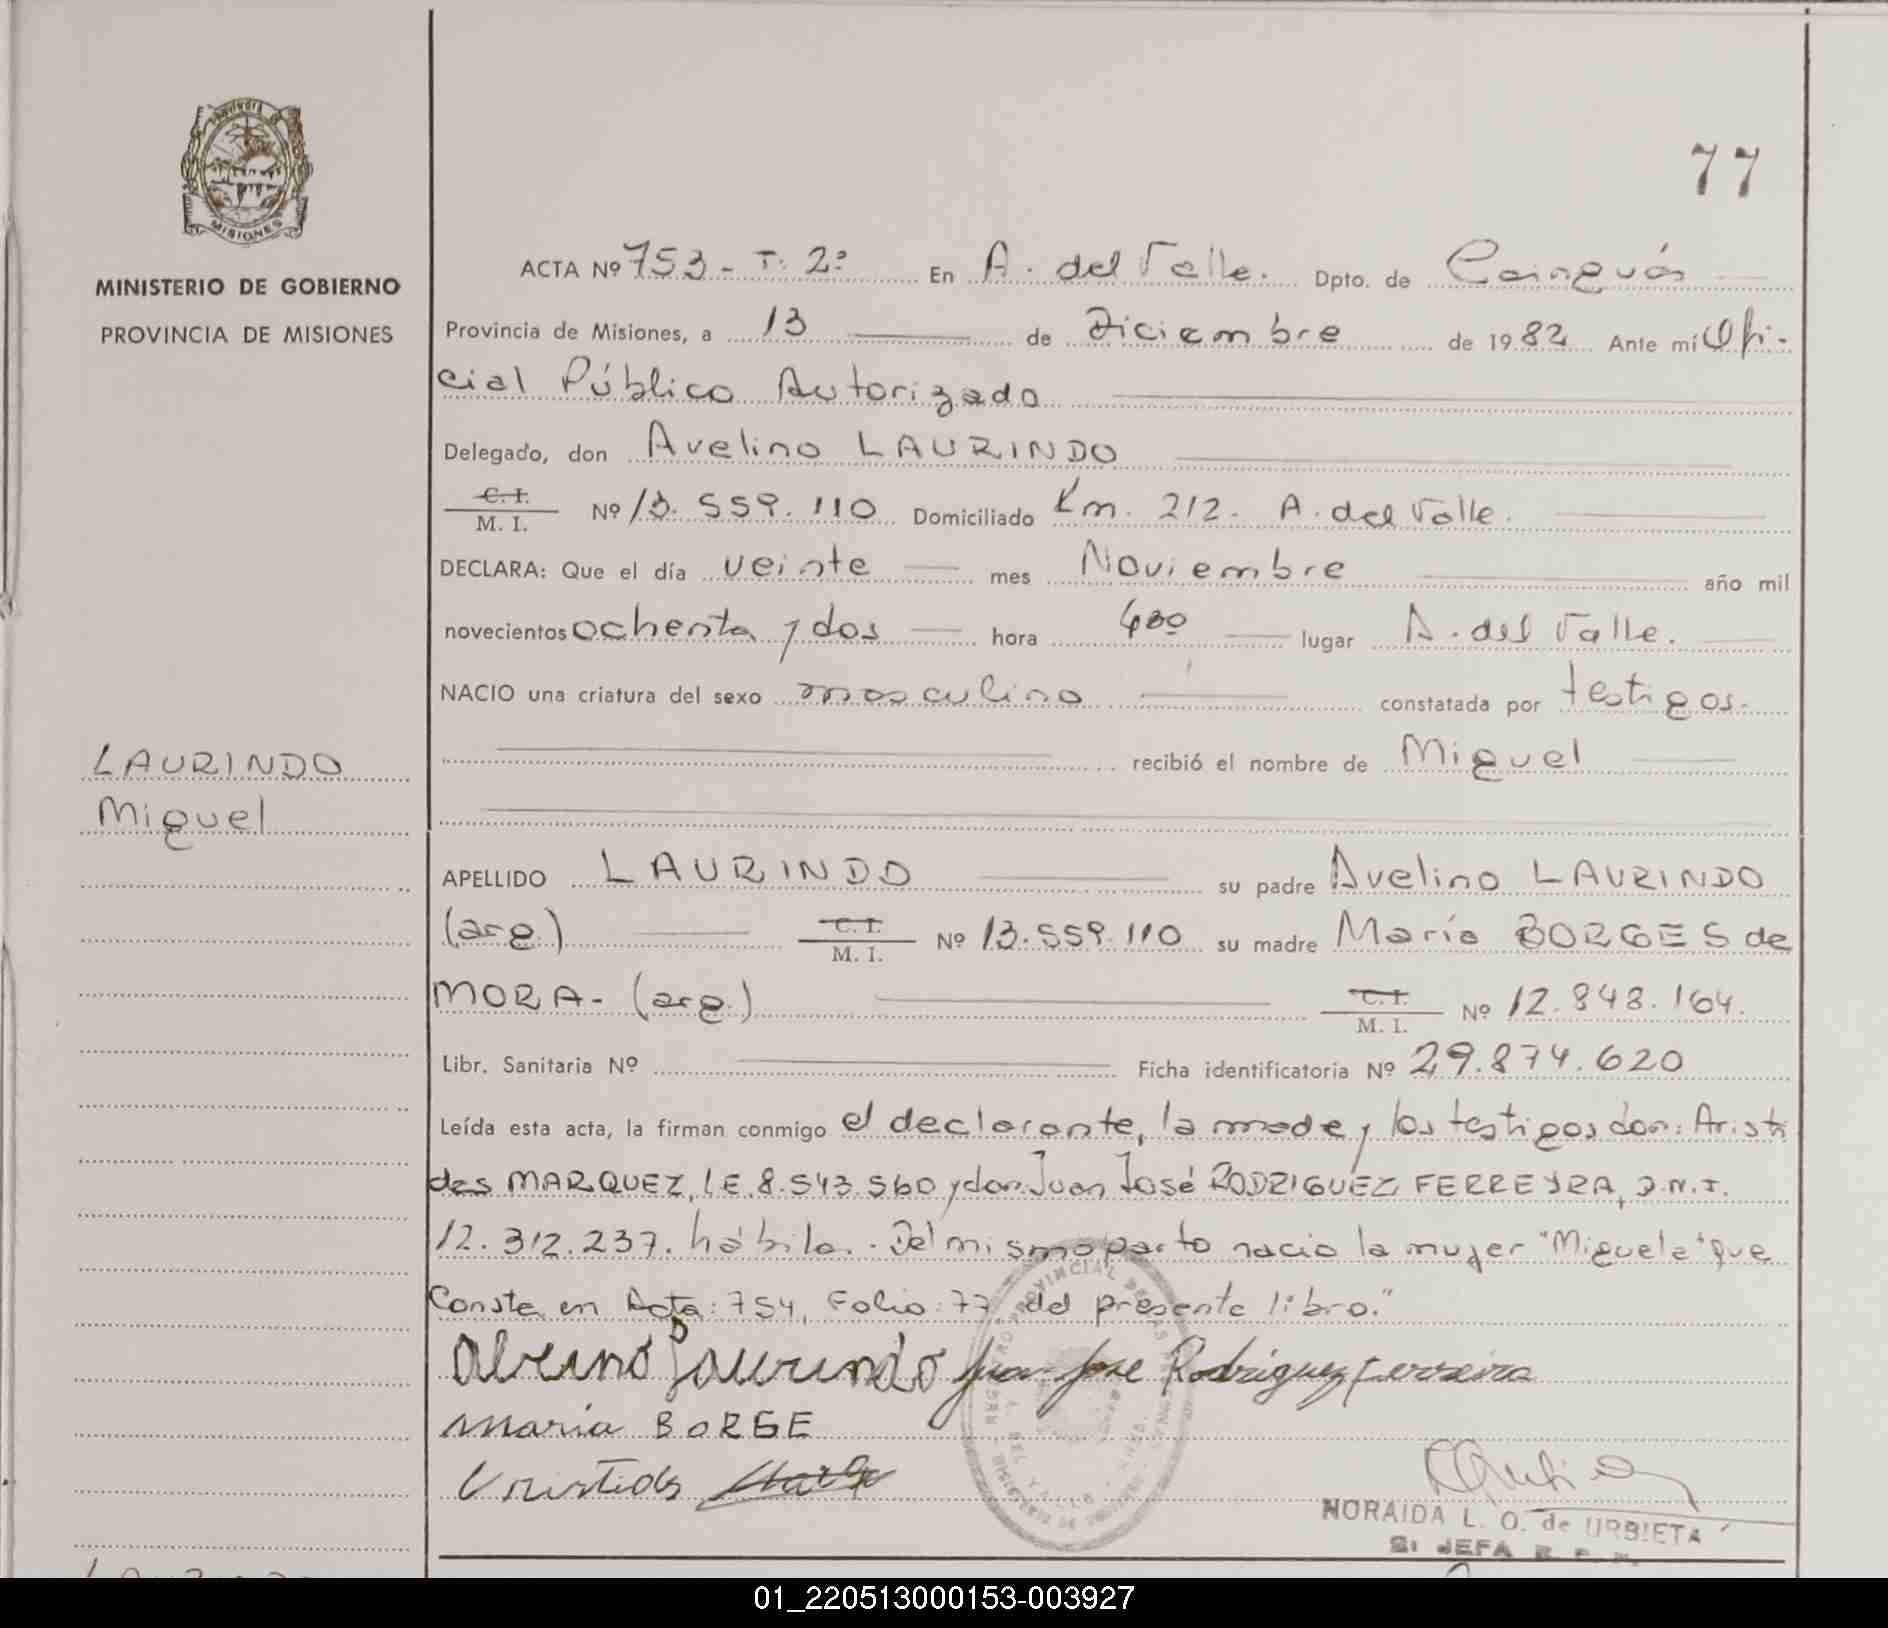 77
MISIONES
MINISTERIO DE GOBIERNO
PROVINCIA DE MISIONES
ACTA Nº 753 - T: 2º En A. del Valle. Dpto. de Cainguás
Provincia de Misiones, a 13 de Diciembre de 1982 Ante mí Ofi-
cial Público Autorizado
Delegado, don Avelino LAURINDO
C. I.
M. I. Nº 13.559.110 Domiciliado Km. 212. A. del Valle.
DECLARA: Que el día veinte mes Noviembre año mil
novecientos ochenta y dos hora 4:00 lugar A. del Valle.
NACIO una criatura del sexo masculino constatada por testigos.
recibió el nombre de Miguel
LAURINDO
Miguel
APELLIDO LAURINDO su padre Avelino LAURINDO
(arg.) C. I.
M. I. Nº 13.559.110 su madre María BORGES de
MORA- (arg.) C. I.
M. I. Nº 12.848.164.
Libr. Sanitaria Nº Ficha identificatoria Nº 29.874.620
Leída esta acta, la firman conmigo el declarante, la madre y los testigos don: Aristi
des MARQUEZ, L.E. 8.543.560 y don: Juan José RODRIGUEZ FERREYRA, D.N.I.
12.312.237. hábile. - Del mismo parto nacio la mujer "Miguela" que
Conste en Acta: 754, Folio: 77 del presente libro."
Alveino Laurindo Juan Jose Rodriguez Ferreira
maria BORGE
Aristides
NORAIDA L. O. de URBIETA
JEFA R. P.
01_220513000153-003927